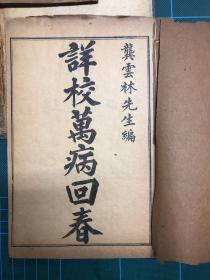 龔雲林先生編
詳校萬病回春